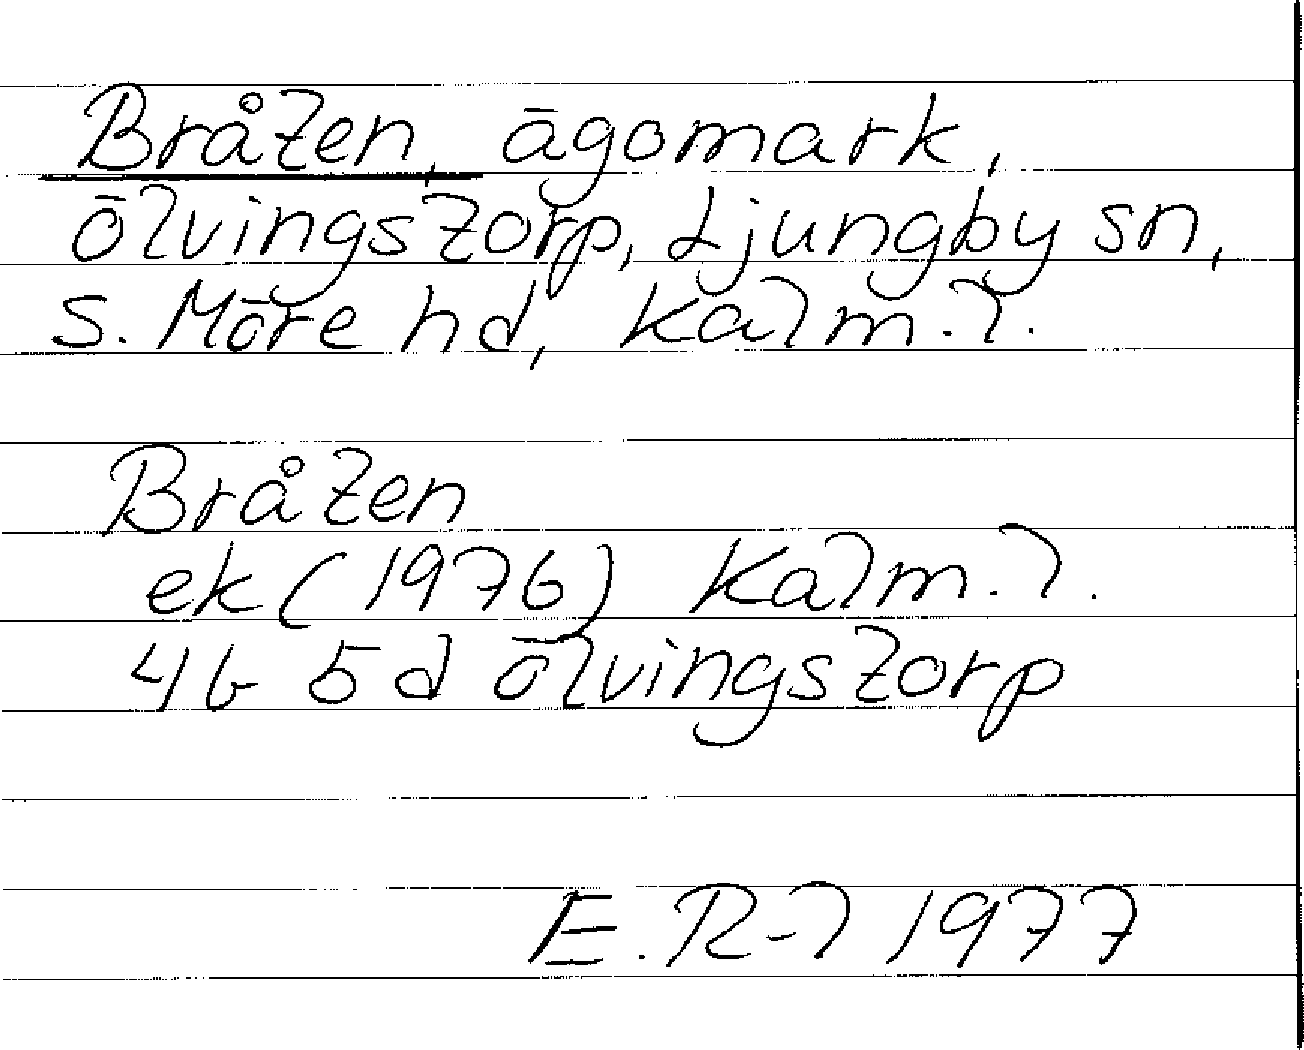 Bråten, ägomark,
Ölvingstorp, Ljungby sn,
S. Möre hd, Kalm. l.
Bråten
ek (1976) Kalm. l.
4G 5d Ölvingstorp
E. R-l 1977